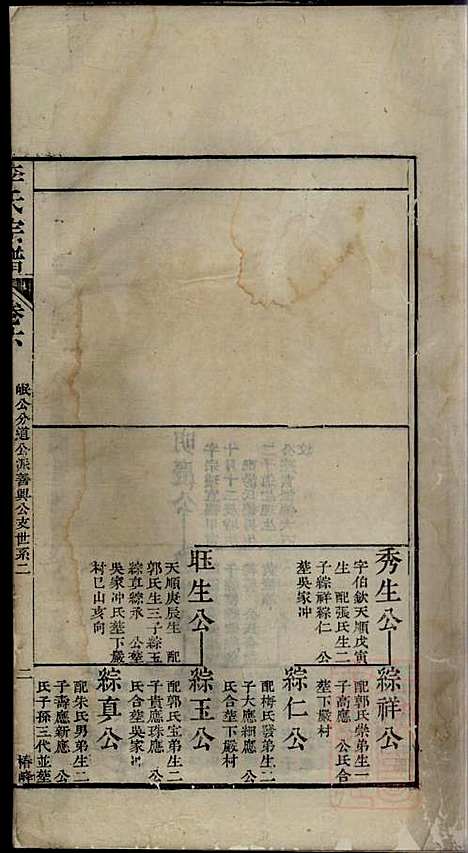 秀生公
字伯欽天順戊寅
生　配張氏生二
子綜祥綜仁　公
塟吳家冲
綜祥公
配郭氏崇弟生一
子高應　公氏合
塟下嚴村
綜仁公
配梅氏發弟生二
子大應細應　公
氏合塟下嚴村
玨生公
天順庚辰生　配
郭氏生三子綜玉
綜真綜永　公塟
吳家冲氏塟下嚴
村巳山亥向
綜玉公
配郭氏宝弟生二
子貴應珠應　公
氏合塟吳家冲
綜真公
配朱氏男弟生二
子壽應新應　公
氏子孫三代並塟
李氏宗譜
卷六
岷公分道公派善興公支世系二
二
椿